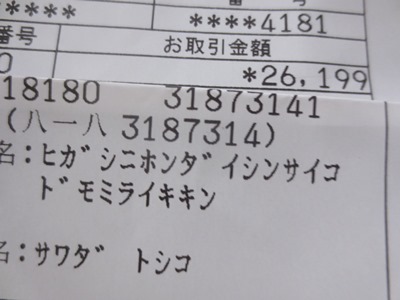 番 号
***** ****4181
番号 お取引金額
0 *26,199
18180 31873141
(八一八 3187314)
名:ヒガシニホンダイシンサイコ
ドモミライキキン
名:サワダ トシコ